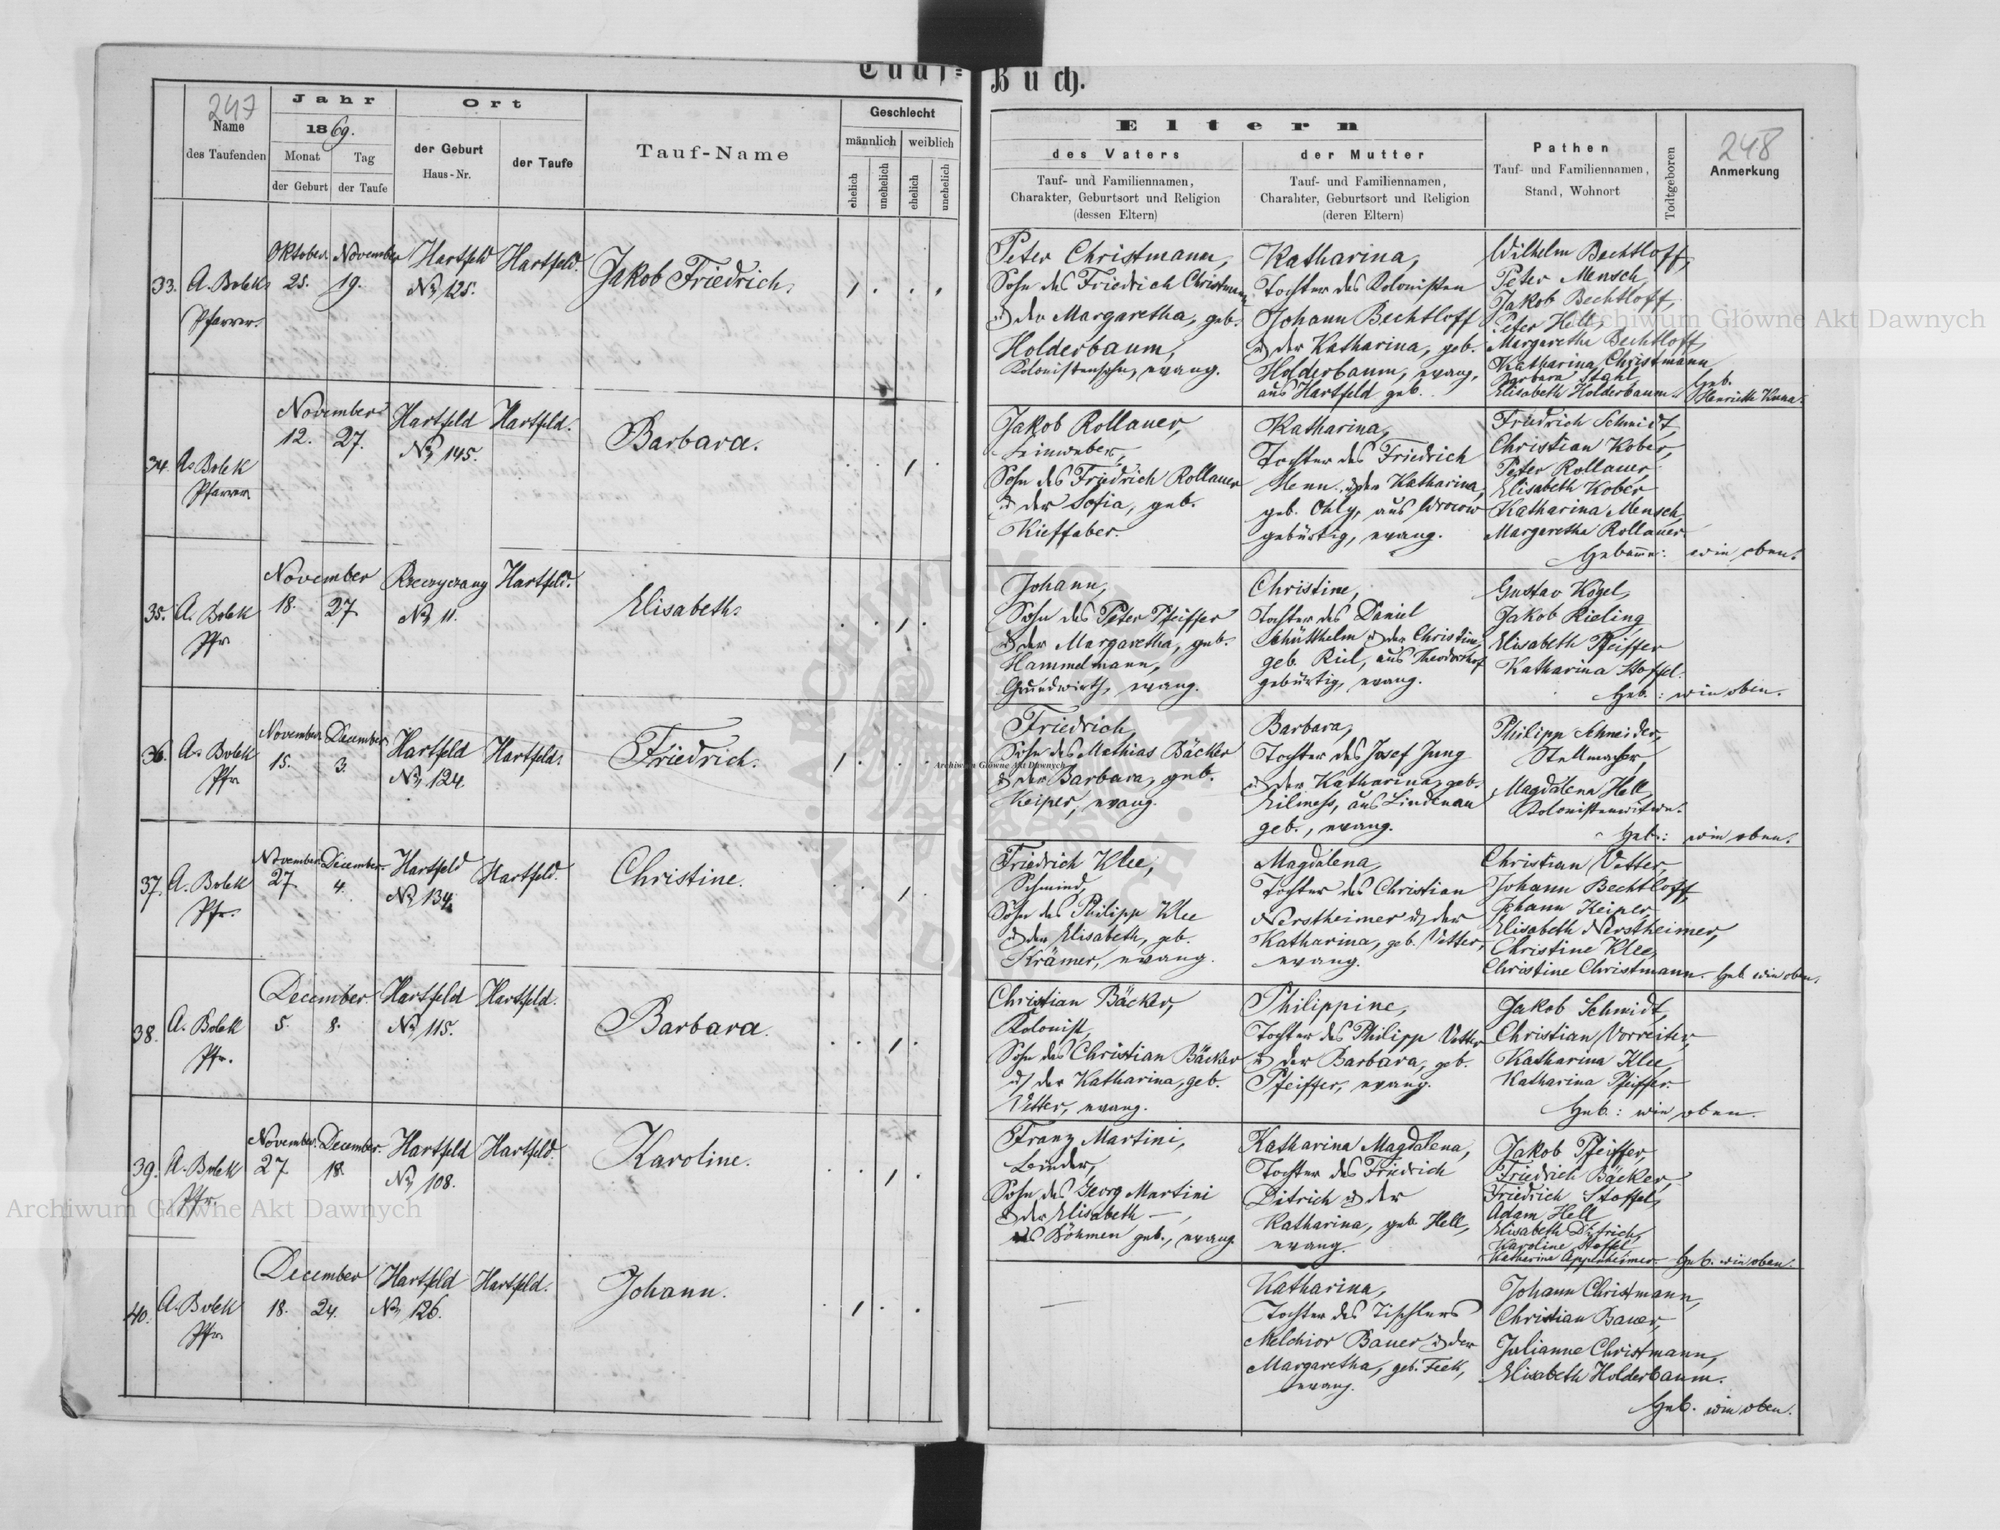 Tauf-Buch.
247
Name
des Taufenden
Jahr
1869.
Monat
Tag
der Geburt
der Taufe
Ort
der Geburt
Haus-Nr.
der Taufe
Tauf-Name
Geschlecht
männlich
weiblich
ehelich
unehelich
ehelich
unehelich
Eltern
des Vaters
Tauf- und Familiennamen,
Charakter, Geburtsort und Religion
(dessen Eltern)
der Mutter
Tauf- und Familiennamen,
Charahter, Geburtsort und Religion
(deren Eltern)
Pathen
Tauf- und Familiennamen,
Stand, Wohnort
Todtgeboren
248
Anmerkung
33.
A. Bolek
Pfarrer.
Oktober
25.
November
19.
Hartfeld
No 125.
Hartfeld.
Jakob Friedrich.
1
Peter Christmann,
Sohn des Friedrich Christmann
u. der Margaretha, geb.
Holderbaum,
Kolonistensohn, evang.
Katharina,
Tochter des Kolonisten
Johann Bechtloff
u. der Katharina, geb.
Holderbaum, evang.
aus Hartfeld geb.
Wilhelm Bechtloff,
Peter Mensch,
Jakob Bechtloff,
Peter Hell,
Margaretha Bechtloff,
Katharina Christmann
Barbara Stahl,
Elisabeth Holderbaum.
Geb.
34.
A. Bolek
Pfarrer
November
12.
27.
Hartfeld
No 145.
Hartfeld.
Barbara.
1
Jakob Rollauer,
Leinweber,
Sohn des Friedrich Rollauer
u. der Sofia, geb.
Kieffaber.
Katharina,
Tochter des Friedrich
Henn u. der Katharina,
geb. Ohly, aus Wrocow
gebürtig, evang.
Friedrich Schmidt,
Christian Kober,
Peter Rollauer
Elisabeth Kober
Katharina Mensch
Margaretha Rollauer.
Hebamme: wie oben.
35.
A. Bolek
Pfr
November
18.
27.
Rzeczyczany
No 11.
Hartfeld.
Elisabeth.
1
Johann,
Sohn des Peter Pfeiffer
u. der Margaretha, geb.
Hammelmann,
Grundwirth, evang.
Christine,
Tochter des Daniel
Schütthelm u. der Christine,
geb. Riel, aus Theodorshof
gebürtig, evang.
Gustav Kögel,
Jakob Rieling
Elisabeth Pfeiffer
Katharina Stoffel.
Heb.: wie oben.
36.
A. Bolek
Pfr
November
15.
December
3.
Hartfeld
No 124.
Hartfeld.
Friedrich.
1
Friedrich,
Sohn des Mathias Bäcker
u. der Barbara, geb.
Keiper, evang.
Barbara,
Tochter des Josef Jung
u. der Katharina, geb.
aus Lindenau
geb., evang.
Philipp Schneider,
Stellmacher,
Magdalena Hell,
Kolonistenwitwe.
Heb.: wie oben.
37.
A. Bolek
Pfr.
November
27.
December.
4.
Hartfeld
No 134
Hartfeld.
Christine.
1
Friedrich Klee,
Schmied,
Sohn des Philipp Klee
u. der Elisabeth, geb.
Krämer, evang.
Magdalena,
Tochter des Christian
Nerstheimer u. der
Katharina, geb. Vetter,
evang.
Christian Vetter,
Johann Bechtloff,
Johann Keiper,
Elisabeth Nerstheimer,
Christine Klee,
Christine Christmann. Heb. wie oben.
38.
A. Bolek
Pfr.
December.
5.
8.
Hartfeld
No 115.
Hartfeld.
Barbara.
1
Christian Bäcker,
Kolonist,
Sohn des Christian Bäcker
u. der Katharina, geb.
Vetter, evang.
Philippine,
Tochter des Philipp Vetter
u. der Barbara, geb.
Pfeiffer, evang.
Jakob Schmidt,
Christian Vorreiter,
Katharina Klee,
Katharina Pfeiffer.
Heb.: wie oben.
39.
A. Bolek
Pfr.
November.
27.
December.
18.
Hartfeld
No 108.
Hartfeld.
Karoline.
1
Franz Martini,
Binder,
Sohn des Georg Martini
u. der Elisabeth —,
aus Böhmen geb., evang.
Katharina Magdalena,
Tochter des Friedrich
Ditrich u. der
Katharina, geb. Hell,
evang.
Jakob Pfeiffer,
Friedrich Bäcker,
Friedrich Stoffel,
Adam Hell
Elisabeth Ditrich,
Karoline Stoffel
Katharina Appenheimer. Heb. wie oben.
40.
A. Bolek
Pfr.
December
18.
24.
Hartfeld
No 126.
Hartfeld.
Johann.
1
—
Katharina,
Tochter des Tischlers
Melchior Bauer u. der
Margaretha, geb. Feek,
evang.
Johann Christmann,
Christian Bauer,
Julianne Christmann,
Elisabeth Holderbaum.
Heb. wie oben.
Archiwum Główne Akt Dawnych
Archiwum Główne Akt Dawnych
Archiwum Główne Akt Dawnych